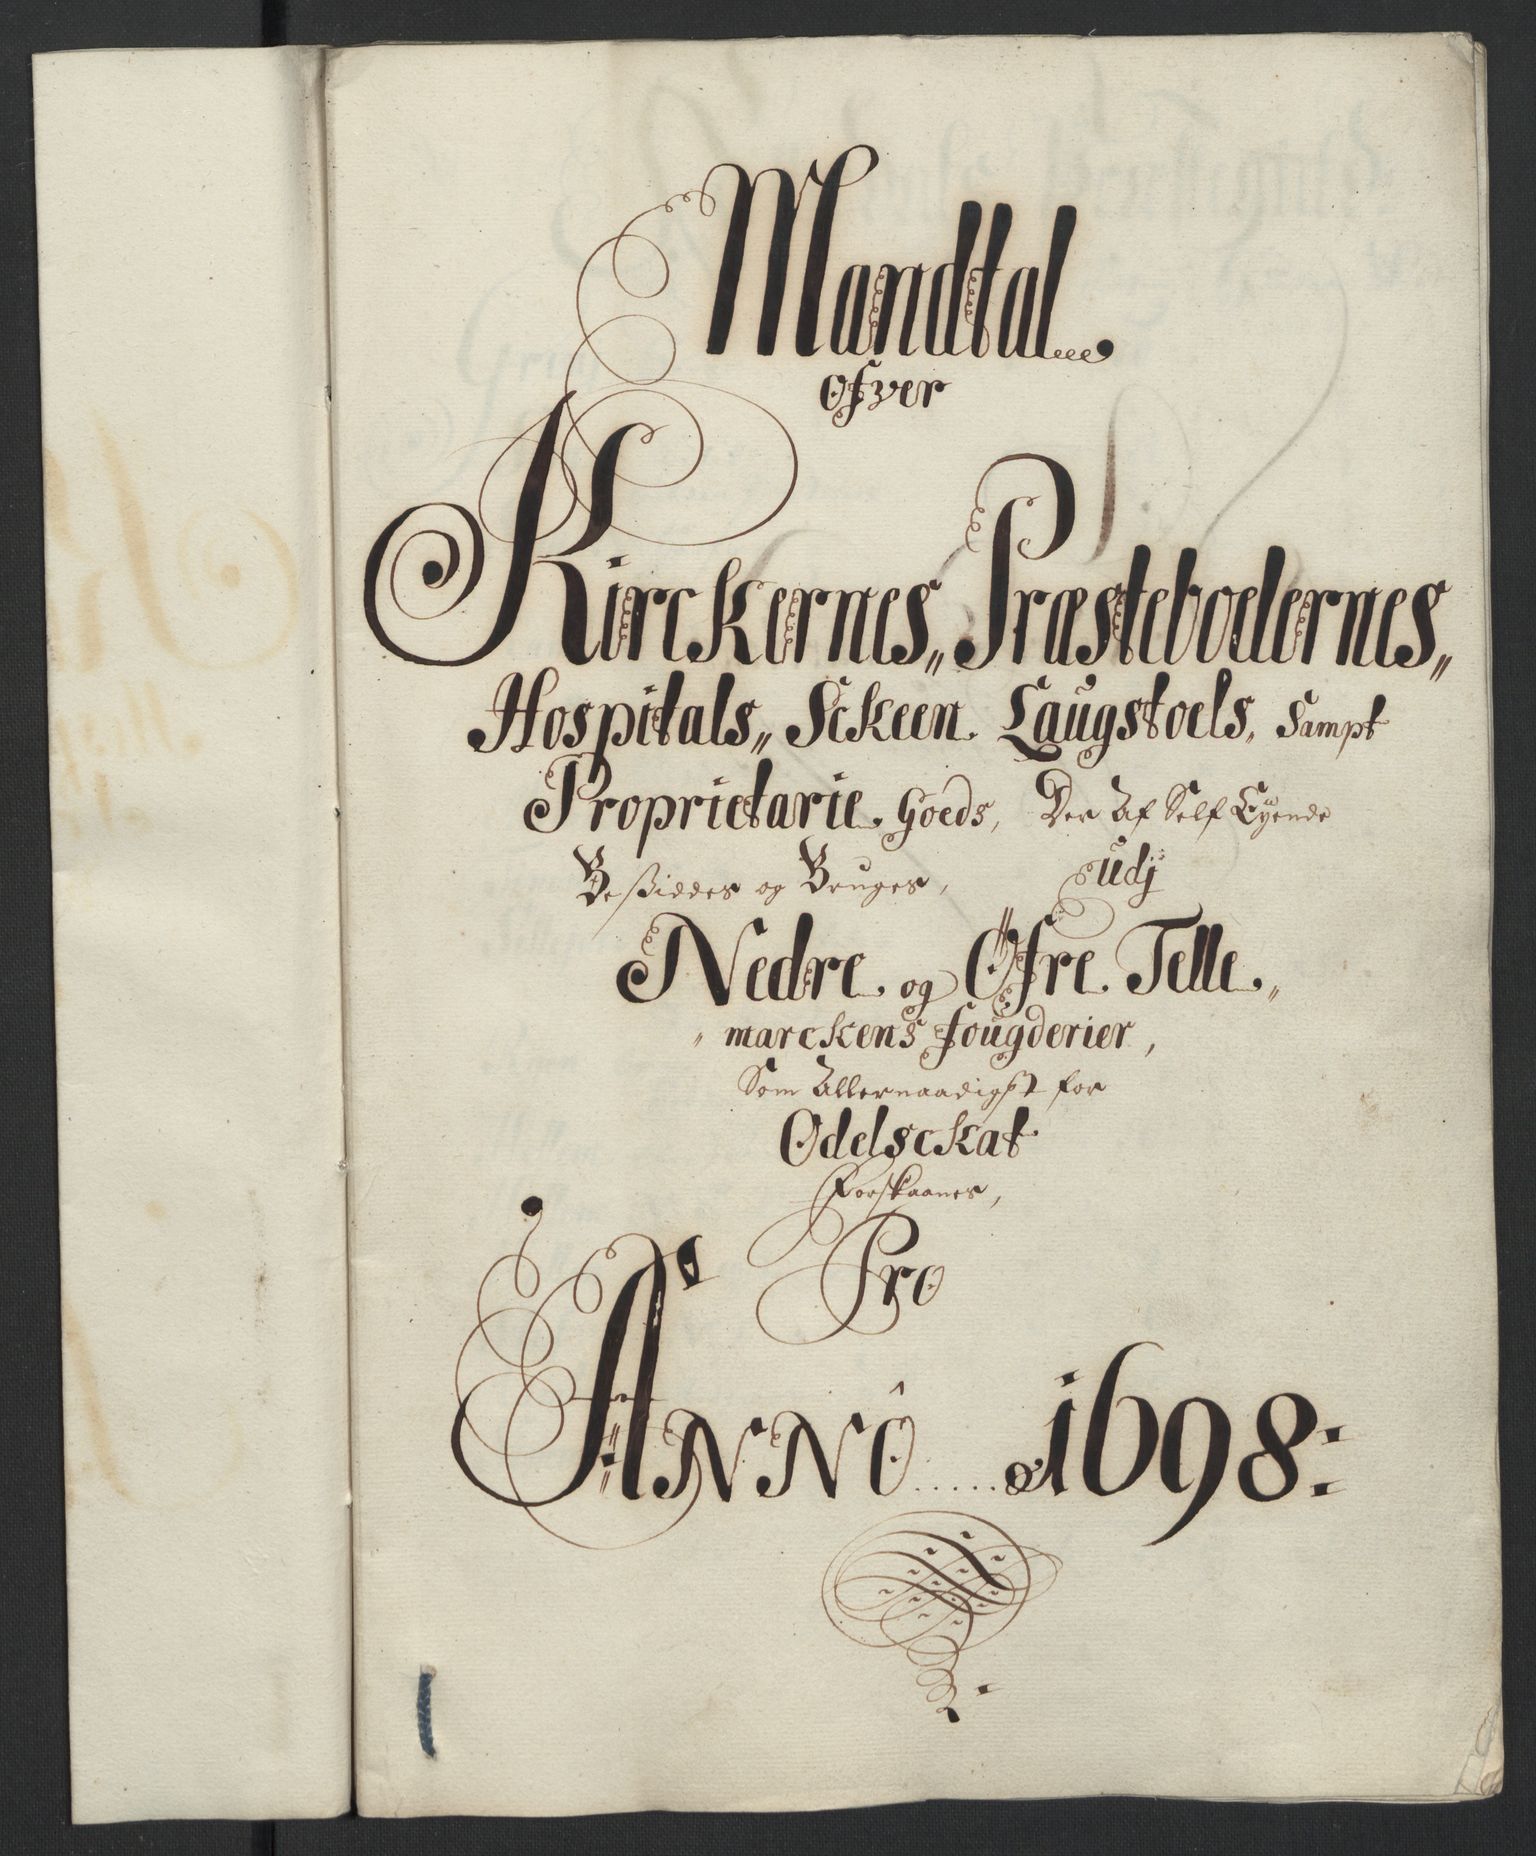 Mandtal
Ofver
Kirckernes,, Præstebolernes,,
Hospitals,, Sckeen. Laugstoels, Sampt
Proprietarie Goeds, Der Af Self Eyende
Beßiddes og Bruges, udj
Nedre og Øfre Telle,,
,, marckens fougderier,
Som Allernaadigst for
Odelsckat
Forskaanes,
Pro
ANNÔ.....1698: